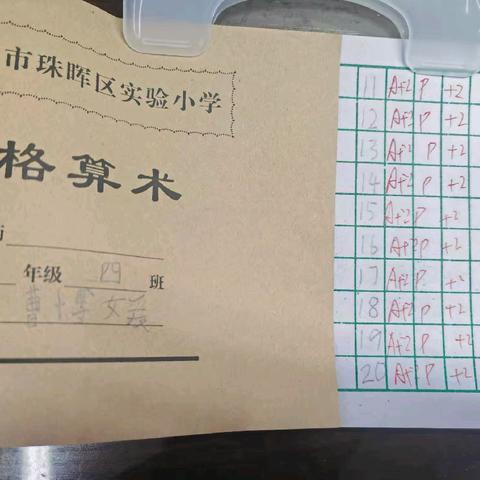 市珠晖区实验小学
格算术
年级 四 班
11 A+2 P +2
12 A+2 P +2
13 A+2 P +2
14 A+2 P +2
15 A+2 P +2
16 A+2 P +2
17 A+2 P +2
18 A+2 P +2
19 A+2 P +2
20 A+2 P +2